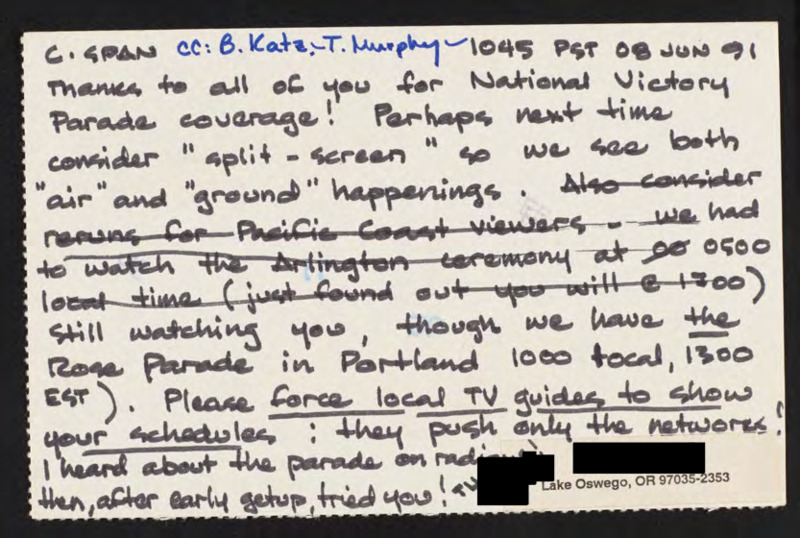 C-SPAN cc: B. Katz, T. Murphy 1045 PST 08 JUN 91
Thanks to all of you for National Victory
Parade coverage! Perhaps next time
consider "split-screen" so we see both
"air" and "ground" happenings. Also consider
reruns for Pacific Coast viewers - we had
to watch the Arlington ceremony at 0500
local time (just found out you will @ 1700)
Still watching you, though we have the
Rose Parade in Portland 1000 local, 1300
EST). Please force local TV guides to show
your schedules: they push only the networks!
I heard about the parade on radio
then, after early getup, tried you!
Lake Oswego, OR 97035-2353